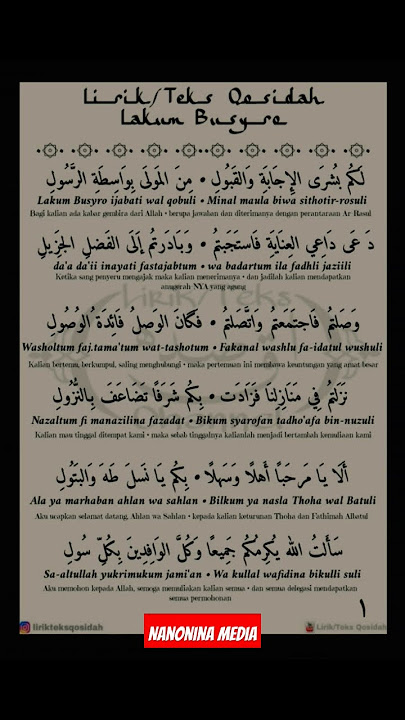 Lirik/Teks Qosidah
Lakum Busyro
لَكُمْ بُشْرَى الإِجَابَةِ وَالقَبُولِ • مِنَ المَوْلَى بِوَاسِطَةِ الرَّسُولِ
Lakum Busyro ijabati wal qobuli • Minal maula biwa sithotir-rosuli
Bagi kalian ada kabar gembira dari Allah • berupa jawaban dan diterimanya dengan perantaraan Ar Rasul
دَعَى دَاعِي العِنَايَةِ فَاسْتَجَبْتُمْ • وَبَادَرْتُمْ إِلَى الفَضْلِ الجَزِيْلِ
da'a da'ii inayati fastajabtum • wa badartum ila fadhli jaziili
Ketika sang penyeru mengajak maka kalian menerimanya • dan jadilah kalian mendapatkan
anugerah NYA yang agung
وَصَلْتُمْ فَاجْتَمَعْتُمْ وَاتَّصَلْتُمْ • فَكَانَ الوَصْلُ فَائِدَةَ الوُصُولِ
Washoltum faj.tama'tum wat-tashotum • Fakanal washlu fa-idatul wushuli
Kalian bertemu, berkumpul, saling menghubungi • maka pertemuan ini membawa keuntungan yang amat besar
نَزَلْتُمْ فِي مَنَازِلِنَا فَزَادَتْ • بِكُمْ شَرَفًا تَضَاعَفَ بِالنُّزُولِ
Nazaltum fi manazilina fazadat • Bikum syarofan tadho'afa bin-nuzuli
Kalian mau tinggal ditempat kami • maka sebab tinggalnya kalianlah menjadi bertambah kemuliaan kami
أَلَا يَا مَرْحَبًا أَهْلًا وَسَهْلًا • بِكُمْ يَا نَسْلَ طَهَ وَالبَتُولِ
Ala ya marhaban ahlan wa sahlan • Bilkum ya nasla Thoha wal Batuli
Aku ucapkan selamat datang, Ahlan wa Sahlan • kepada kalian keturunan Thoha dan Fathimah Albatul
سَأَلْتُ اللهَ يُكْرِمُكُمْ جَمِيعًا وَكُلَّ الوَافِدِينَ بِكُلِّ سُولِ
Sa-altullah yukrimukum jami'an • Wa kullal wafidina bikulli suli
Aku memohon kepada Allah, semoga memuliakan kalian semua • dan semua delegasi mendapatkan
semua permohonan
١
lirikteksqosidah
NANONINA MEDIA
Lirik/Teks Qosidah